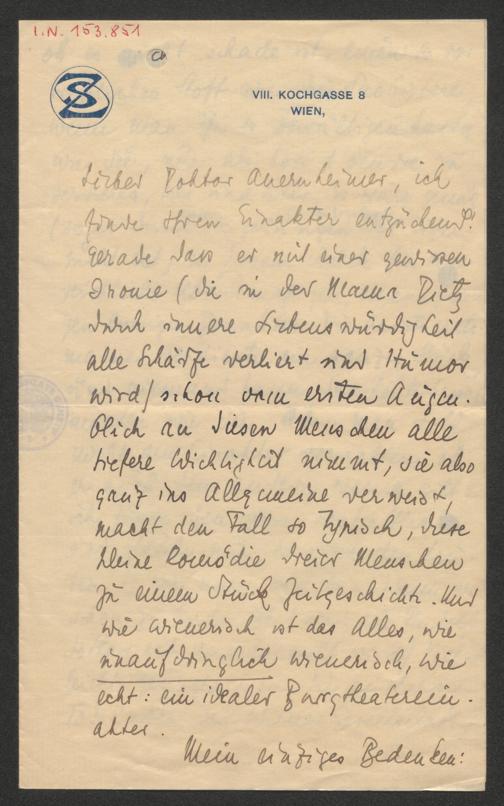 I.N. 153.851
SZ
VIII. KOCHGASSE 8
WIEN,
Lieber Doktor Auernheimer, ich
finde Ihren Einakter entzückend!
Gerade dass er mit einer gewissen
Ironie (die in der Mama Dietz
durch innere Liebenswürdigkeit
alle Schärfe verliert und Humor
wird) schon vom ersten Augen-
blick an diesen Menschen alle
tiefere Wichtigkeit nimmt, sie also
ganz ins Allgemeine verweist,
macht den Fall so typisch, diese
kleine Comödie dreier Menschen
zu einem Stück Zeitgeschichte. Und
wie wienerisch ist das Alles, wie
unaufdringlich wienerisch, wie
echt: ein idealer Burgtheaterein-
akter.
Mein einziges Bedenken: